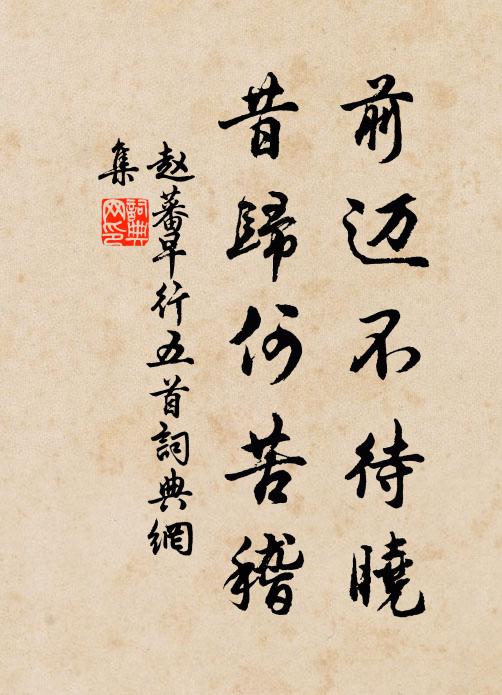 前迈不待曉
昔歸何苦稽
赵蕃早行五首詞典網
集
詞典
网印